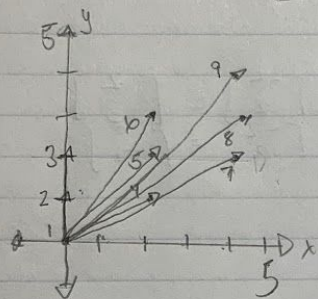 5 y
9
6
8
3 5
4 7
2
1 x
5